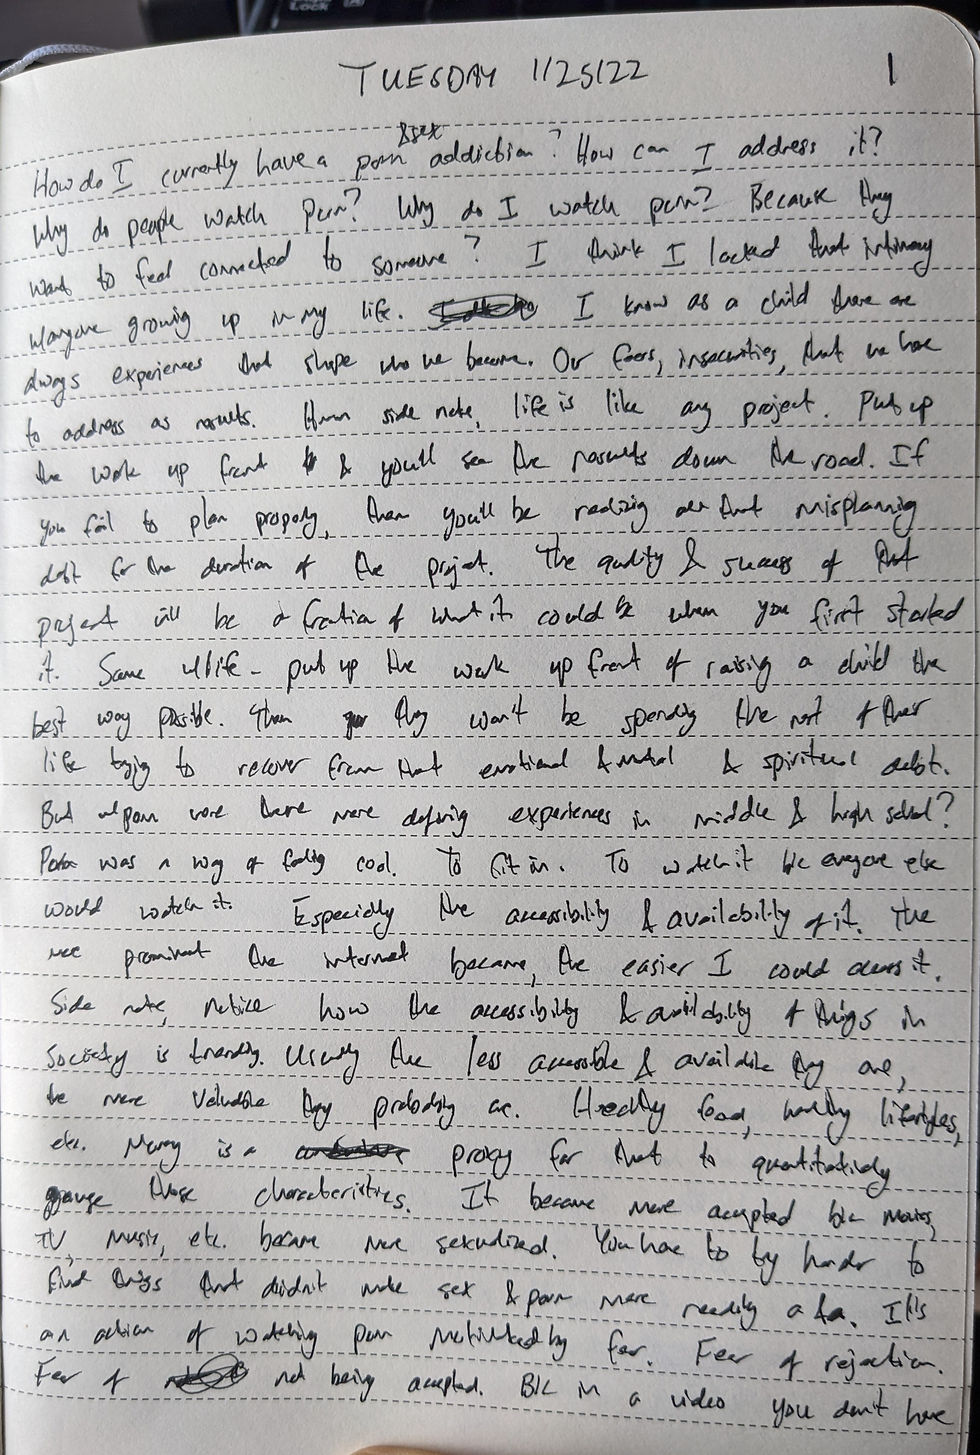 TUESDAY 1/25/22 1
How do I currently have a porn & sex addiction? How can I address it?
Why do people watch porn? Why do I watch porn? Because they
want to feel connected to someone? I think I lacked that intimacy
w/anyone growing up in my life. I know as a child there are
always experiences that shape who we become. Our fears, insecurities, that we have
to address as results. side note, life is like any project. Put up
the work up front & you'll see the results down the road. If
you fail to plan properly, then you'll be realizing all that misplanning
debt for the duration of the project. The quality & success of that
project will be a fraction of what it could be when you first started
it. Same w/life - put up the work up front of raising a child the
best way possible. Then they won't be spending the rest of their
life trying to recover from that emotional & mental & spiritual debt.
But w/porn were there more defining experiences in middle & high school?
Porn was a way of feeling cool. To fit in. To watch it b/c everyone else
would watch it. Especially the accessibility & availability of it. The
more prominent the internet became, the easier I could access it.
Side note, notice how the accessibility & availability of things in
society is trending. Usually the less accessible & available they are,
the more valuable they probably are. Healthy food, healthy lifestyles,
etc. Money is a proxy for that to quantitatively
gauge those characteristics. It became more accepted b/c movies,
TV, music, etc. became more sexualized. You have to try harder to
find things that didn't make sex & porn more readily a thing. It's
an action of watching porn motivated by fear. Fear of rejection.
Fear of not being accepted. B/c in a video you don't have